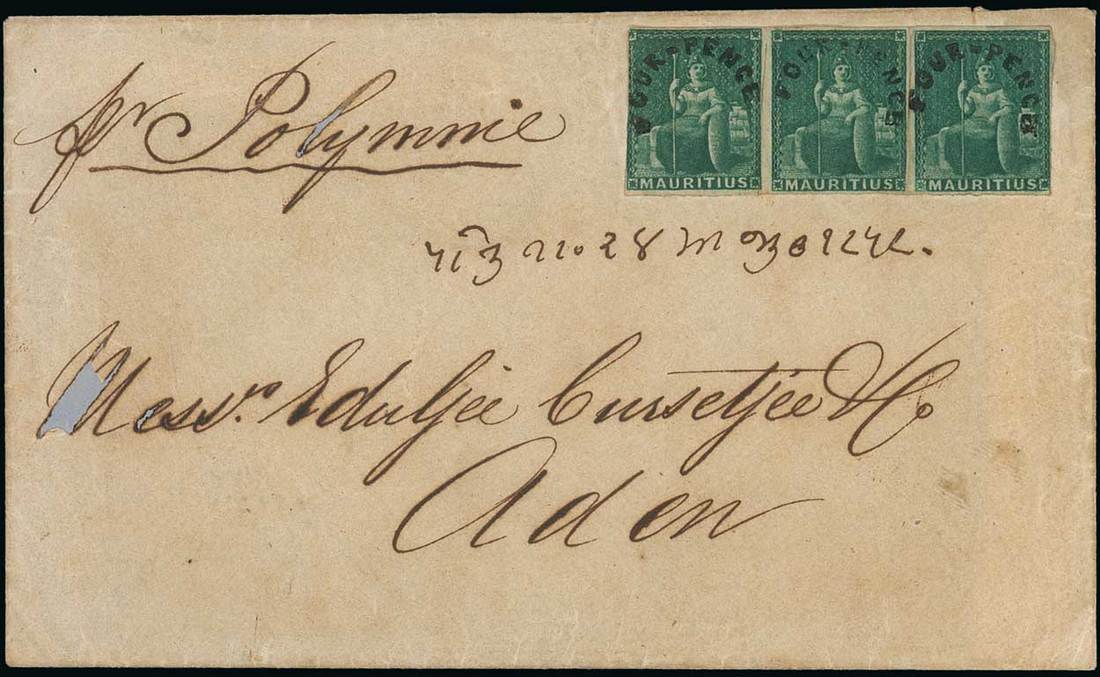 FOUR-PENCE FOUR-PENCE FOUR-PENCE
MAURITIUS MAURITIUS MAURITIUS
pr Polymnie
Messrs. Eduljee Cursetjee & Co
Aden